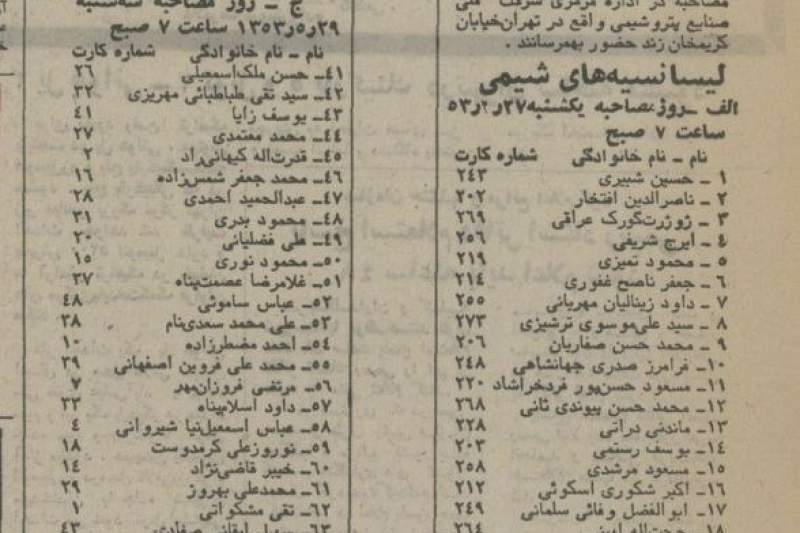 مصاحبه در اداره مرکزی شرکت ملی
صنایع پتروشیمی واقع در تهران‌خیابان
کریمخان زند حضور بهمرسانند .
لیسانسیه‌های شیمی
الف ـ روز مصاحبه یکشنبه ۲۷ر۵ر۵۳
ساعت ۷ صبح
نام ـ نام خانوادگی شماره کارت
۱ ـ حسین شبیری ۲۴۳
۲ ـ ناصرالدین افتخار ۲۰۲
۳ ـ ژوزرت‌گورک عراقی ۲۶۹
۴ ـ ایرج شریفی ۲۵۶
۵ ـ محمود تمیزی ۲۱۹
۶ ـ جعفر ناصح غفوری ۲۱۴
۷ ـ داود زینالیان مهربانی ۲۵۵
۸ ـ سید علی‌موسوی ترشیزی ۲۷۳
۹ ـ محمد حسن صفاریان ۲۰۶
۱۰ـ فرامرز صدری جهانشاهی ۲۴۸
۱۱ـ مسعود حسن‌پور فردخراشاد ۲۲۰
۱۲ـ محمد حسن پیوندی ثانی ۲۶۸
۱۳ـ ماندنی دراتی ۲۲۸
۱۴ـ یوسف رستمی ۲۰۳
۱۵ـ مسعود مرشدی ۲۵۸
۱۶ـ اکبر شکوری اسکوئی ۲۱۲
۱۷ـ ابوالفضل وفائی سلمانی ۲۴۹
۱۸ـ حجت‌اله امینی ۲۶۴
ج ـ روز مصاحبه سه‌شنبه
۲۹ر۵ر۱۳۵۳ ساعت ۷ صبح
نام ـ نام خانوادگی شماره کارت
۴۱ـ حسن ملک‌اسمعیلی ۲۶
۴۲ـ سید تقی طباطبائی مهریزی ۳۲
۴۳ـ یوسف زایا ۴۱
۴۴ـ محمد معتمدی ۲۷
۴۵ـ قدرت‌اله کیهانی‌راد ۲
۴۶ـ محمد جعفر شمس‌زاده ۱۶
۴۷ـ عبدالحمید احمدی ۲۸
۴۸ـ محمود بدری ۳۱
۴۹ـ علی فضلیانی ۲۰
۵۰ـ محمود نوری ۱۵
۵۱ـ غلامرضا عصمت‌پناه ۳۷
۵۲ـ عباس ساموئی ۴۸
۵۳ـ علی محمد سعدی‌نام ۳۸
۵۴ـ احمد مضطرزاده ۱۰
۵۵ـ محمد علی قروین اصفهانی ۳۹
۵۶ـ مرتضی فروزان‌مهر ۷
۵۷ـ داود اسلام‌پناه ۳۳
۵۸ـ عباس اسمعیل‌نیا شیروانی ۴
۵۹ـ نوروزعلی کرمدوست ۱۸
۶۰ـ خیبر قاضی‌نژاد ۱۴
۶۱ـ محمدعلی بهروز ۲۹
۶۲ـ تقی مشکواتی ۱
۶۳ـ ۴۳